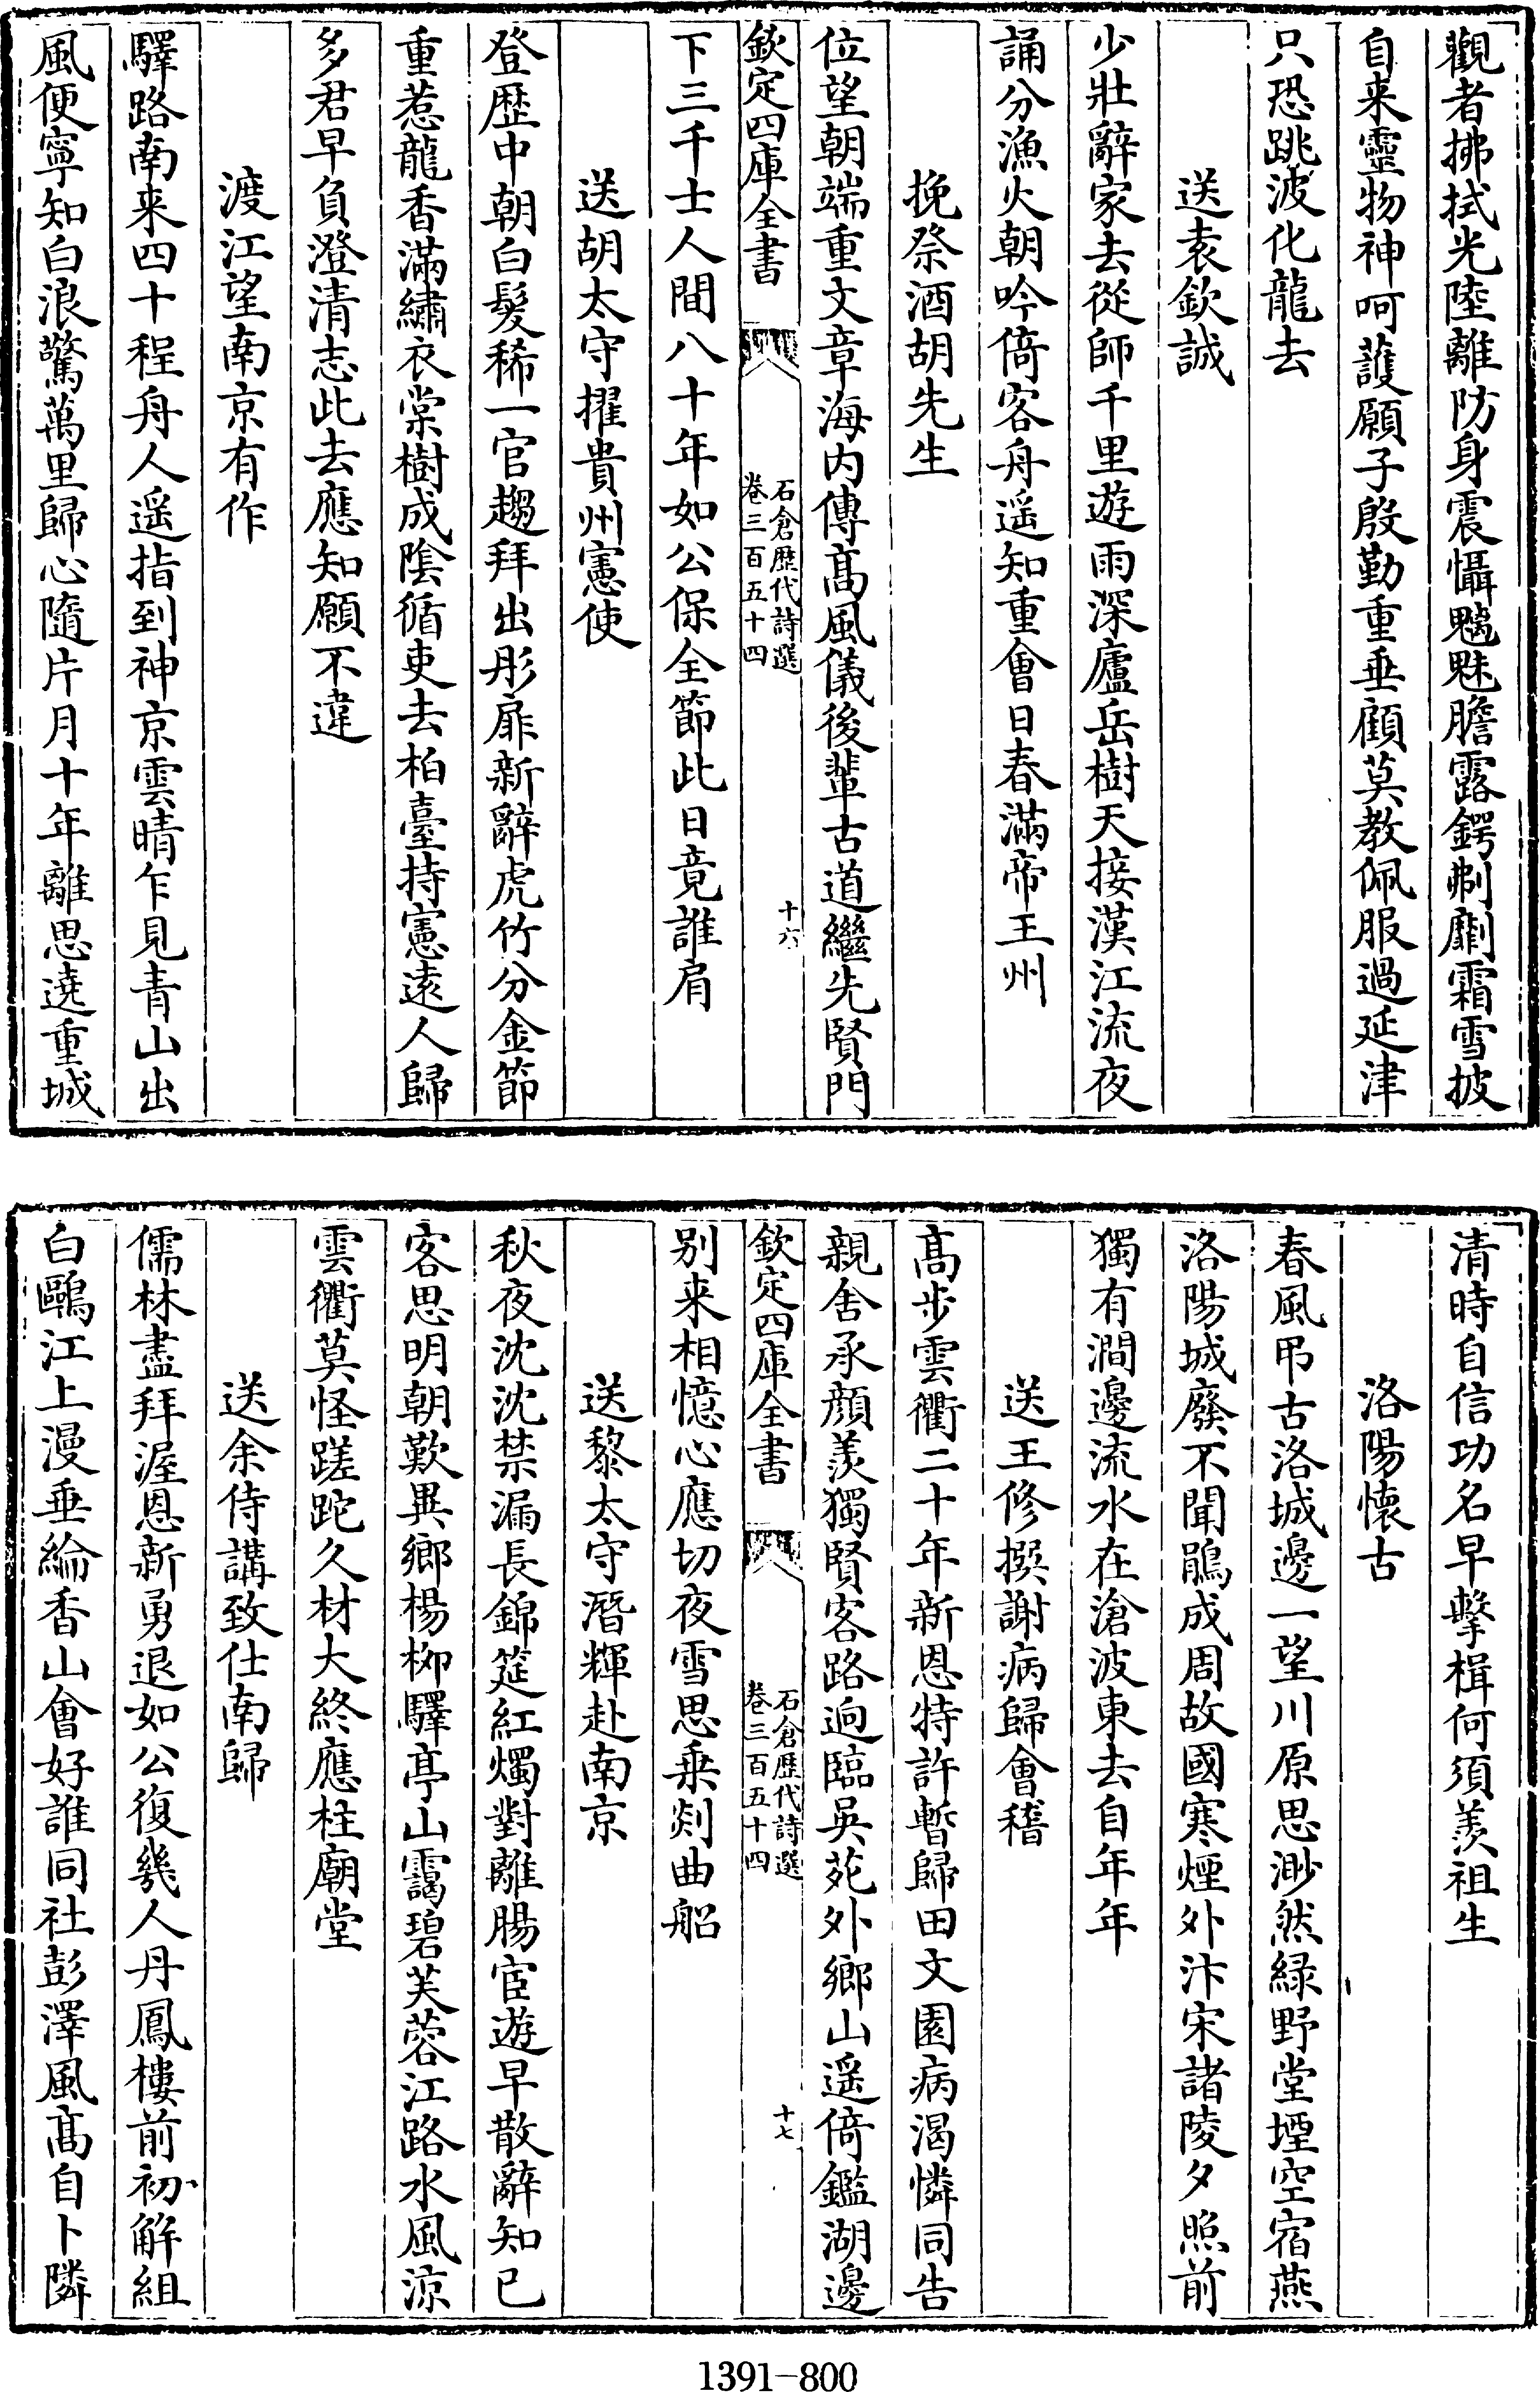 觀者拂拭光陸離防身震懾魑魅膽露鍔剸劘霜雪披
自来靈物神呵䕶願子殷勤重垂顧莫教佩服過延津
只恐跳波化龍去
送袁欽誠
少壯辭家去從師千里遊雨深廬岳樹天接漢江流夜
誦分漁火朝吟倚客舟遥知重會日春滿帝王州
挽祭酒胡先生
位望朝端重文章海内傳髙風儀後輩古道繼先賢門
欽定四庫全書
石倉歴代詩選
卷三百五十四
十六
下三千士人間八十年如公保全節此日竟誰肩
送胡太守擢貴州憲使
登歴中朝白髮稀一官趨拜出彤扉新辭虎竹分金節
重惹龍香滿繡衣棠樹成陰循吏去柏臺持憲遠人歸
多君早負澄清志此去應知願不違
渡江望南京有作
驛路南来四十程舟人遥指到神京雲晴乍見青山出
風便寧知白浪驚萬里歸心隨片月十年離思遶重城
清時自信功名早擊楫何須羨祖生
洛陽懷古
春風弔古洛城邊一望川原思渺然緑野堂堙空宿燕
洛陽城廢不聞鵑成周故國寒煙外汴宋諸陵夕照前
獨有澗邊流水在滄波東去自年年
送王修撰謝病歸會稽
髙步雲衢二十年新恩特許暫歸田文園病渴憐同告
親舍承顔羡獨賢客路逈臨吳苑外鄉山遥倚鑑湖邊
欽定四庫全書
石倉歴代詩選
卷三百五十四
十七
别来相憶心應切夜雪思乗剡曲船
送黎太守潛輝赴南京
秋夜沈沈禁漏長錦筵紅燭對離腸宦遊早散辭知已
客思明朝歎異鄉楊栁驛亭山靄碧芙蓉江路水風涼
雲衢莫怪蹉跎久材大終應柱廟堂
送余侍講致仕南歸
儒林盡拜渥恩新勇退如公復幾人丹鳳樓前初解組
白鷗江上漫垂綸香山會好誰同社彭澤風髙自卜隣
1391-800